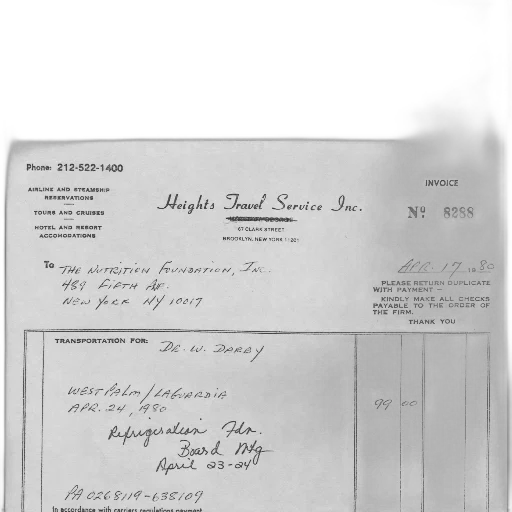 Phone: 212-522-1400
INVOICE
AIRLINE AND STEAMSHIP
RESERVATIONS
TOURS AND CRUISES
HOTEL AND RESORT
ACCOMODATIONS
Heights Travel Service Inc.
67 CLARK STREET
BROOKLYN, NEW YORK 11201
No 8288
To THE NUTRITION FOUNDATION, INC.
489 FIFTH AVE.
NEW YORK NY 10017
APR. 17 1980
PLEASE RETURN DUPLICATE
WITH PAYMENT —
KINDLY MAKE ALL CHECKS
PAYABLE TO THE ORDER OF
THE FIRM.
THANK YOU
TRANSPORTATION FOR: DR. W. DARBY
WEST PALM/LAGUARDIA
APR. 24, 1980 99 00
Refrigeration Fdn.
Board Mtg
April 23-24
PA0268119-638109
In accordance with carriers regulations payment